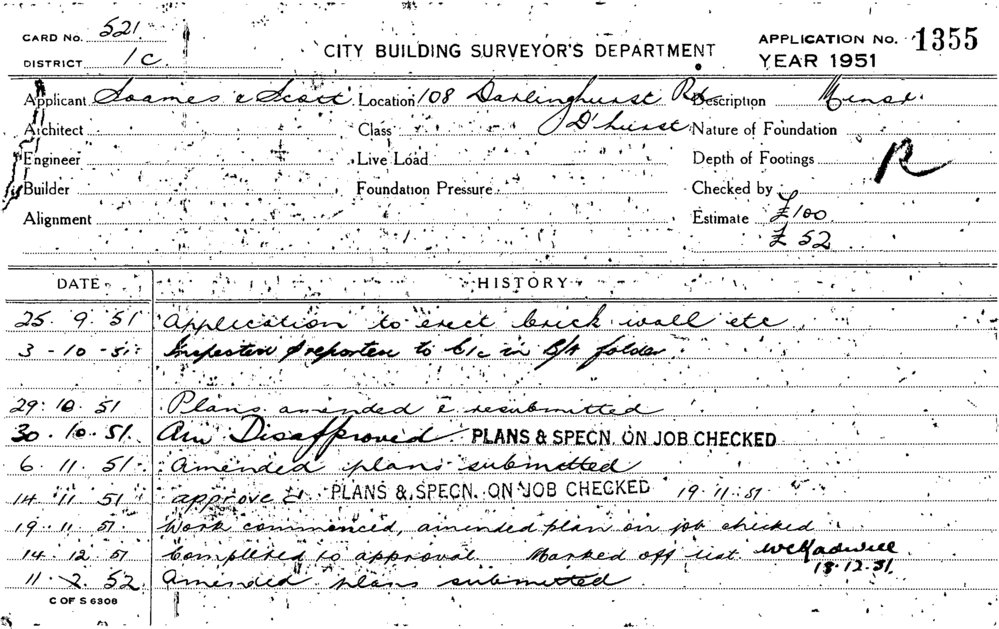 CARD No. 521 CITY BUILDING SURVEYOR'S DEPARTMENT APPLICATION No. 1355
DISTRICT 1c YEAR 1951
Applicant Soames & Scott Location 108 Darlinghurst Rd Description Minor
Architect Class D'hurst Nature of Foundation
Engineer Live Load Depth of Footings R
Builder Foundation Pressure Checked by
Alignment Estimate £100
£ 52
DATE HISTORY
25. 9. 51 Application to erect brick wall etc
3-10-51 Inspected & reported to in folder
29. 10. 51 Plans amended & resubmitted
30. 10. 51. Disapproved. PLANS & SPECN. ON JOB CHECKED
6. 11. 51. Amended plans submitted
14. 11. 51 approved PLANS & SPECN. ON JOB CHECKED 19.11.51
19. 11. 51. Work commenced, amended plan on job checked
14. 12. 51 Completed to approval. Marked off list
13.12.51.
11. 2. 52. Amended plans submitted
C OF S 6308